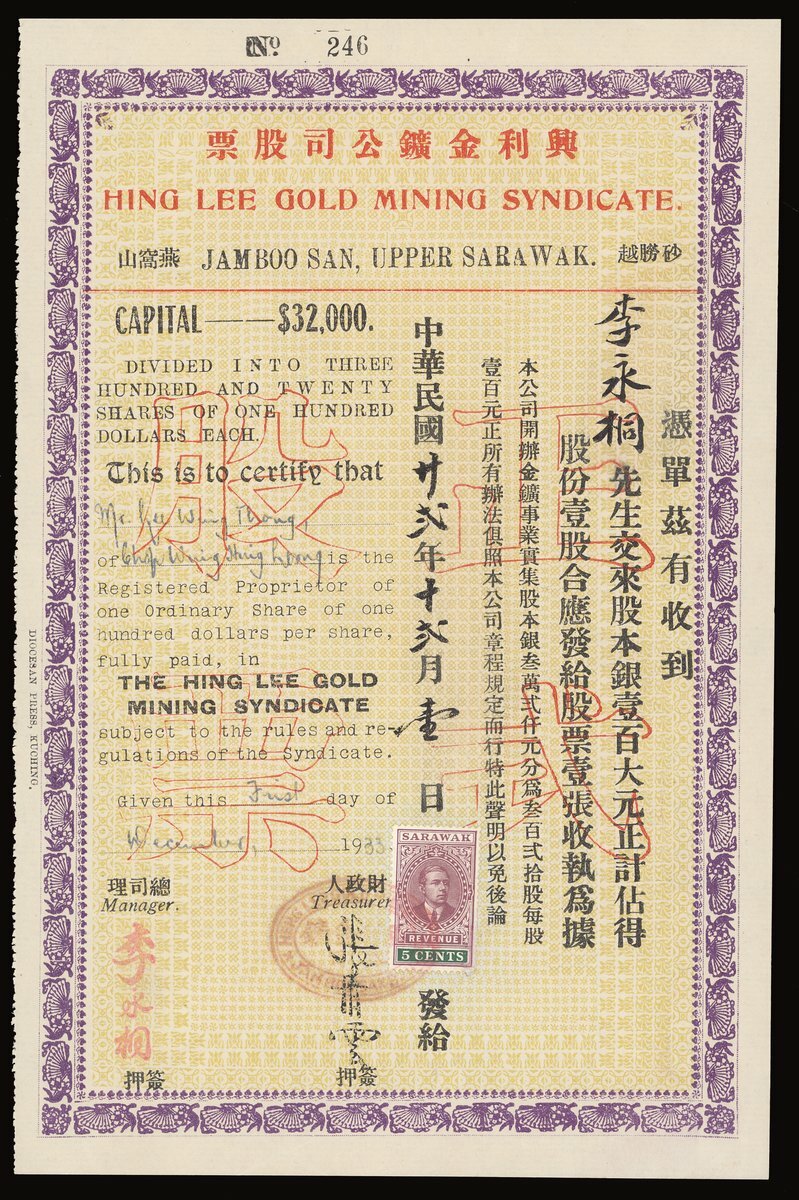 No 246
票股司公鑛金利興
HING LEE GOLD MINING SYNDICATE.
山窩燕 JAMBOO SAN, UPPER SARAWAK. 越朥砂
CAPITAL——$32,000.
DIVIDED INTO THREE
HUNDRED AND TWENTY
SHARES OF ONE HUNDRED
DOLLARS EACH.
This is to certify that
Mr. Lee Wing Thong
of Chop Wing Hing Loong is the
Registered Proprietor of
one Ordinary Share of one
hundred dollars per share,
fully paid, in
THE HING LEE GOLD
MINING SYNDICATE
subject to the rules and re-
gulations of the Syndicate.
Given this First day of
December, 1933.
憑單茲有收到
李永桐先生交來股本銀壹百大元正計佔得
股份壹股合應發給股票壹張收執爲據
本公司開辦金鑛事業實集股本銀叁萬弍仟元分爲叁百弍拾股每股
壹百元正所有辦法俱照本公司章程規定而行特此聲明以免後論
中華民國廿弍年十弍月壹日
發給
正式
股票
理司總
Manager.
李永桐
押簽
人政財
Treasurer
押簽
SARAWAK
REVENUE
5 CENTS
DIOCESAN PRESS, KUCHING.